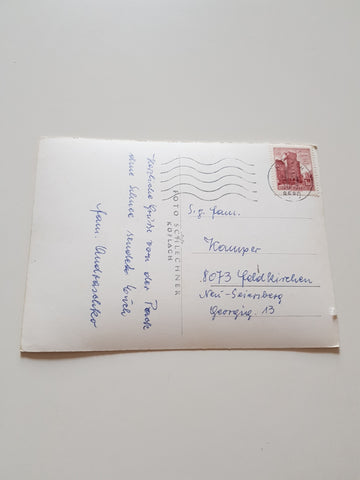 Herzliche Grüße von der Pack
ohne Schnee sendet Euch
Fam. Andraschko
FOTO SCHLECHNER
KÖFLACH
S.g. Fam.
Kamper
8073 Feldkirchen
Neu-Seiersberg
Georgig. 13